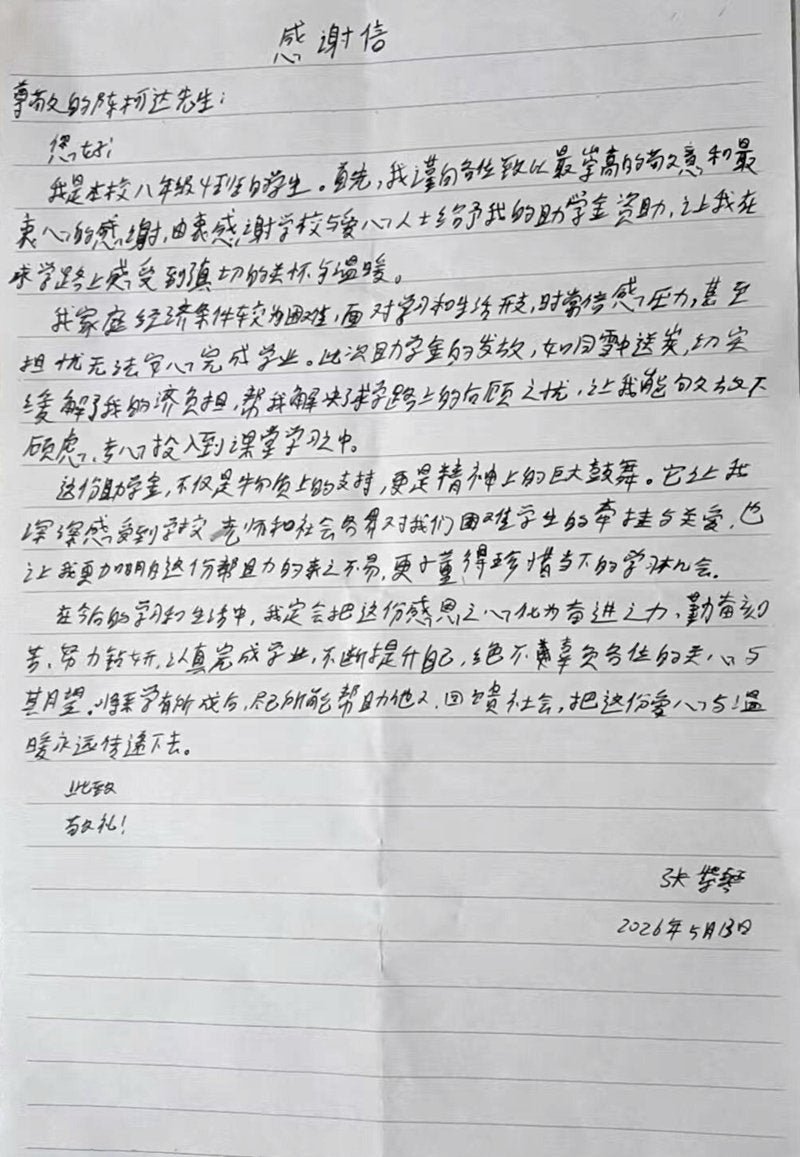 感谢信
尊敬的陈柯达先生：
您好！
我是本校八年级4班的学生。首先，我谨向各位致以最崇高的敬意和最
衷心的感谢，由衷感谢学校与爱心人士给予我的助学金资助，让我在
求学路上感受到真切的关怀与温暖。
我家庭经济条件较为困难，面对学习和生活开支，时常倍感压力，甚至
担忧无法安心完成学业。此次助学金的发放，如同雪中送炭，切实
缓解了我的济负担，帮我解决了求学路上的后顾之忧，让我能够放下
顾虑、专心投入到课堂学习之中。
这份助学金，不仅是物质上的支持，更是精神上的巨大鼓舞。它让我
深深感受到学校、老师和社会各界对我们困难学生的牵挂与关爱，也
让我更加明白这份帮助力的来之不易，更予懂得珍惜当下的学习机会。
在今后的学习和生活中，我定会把这份感恩之心化为奋进之力，勤奋刻
苦、努力钻研，认真完成学业，不断提升自己，绝不辜负各位的关心与
期望。将来学有所成后，尽己所能帮助他人、回馈社会，把这份爱心与温
暖永远传递下去。
此致
敬礼！
张
2026年5月13日